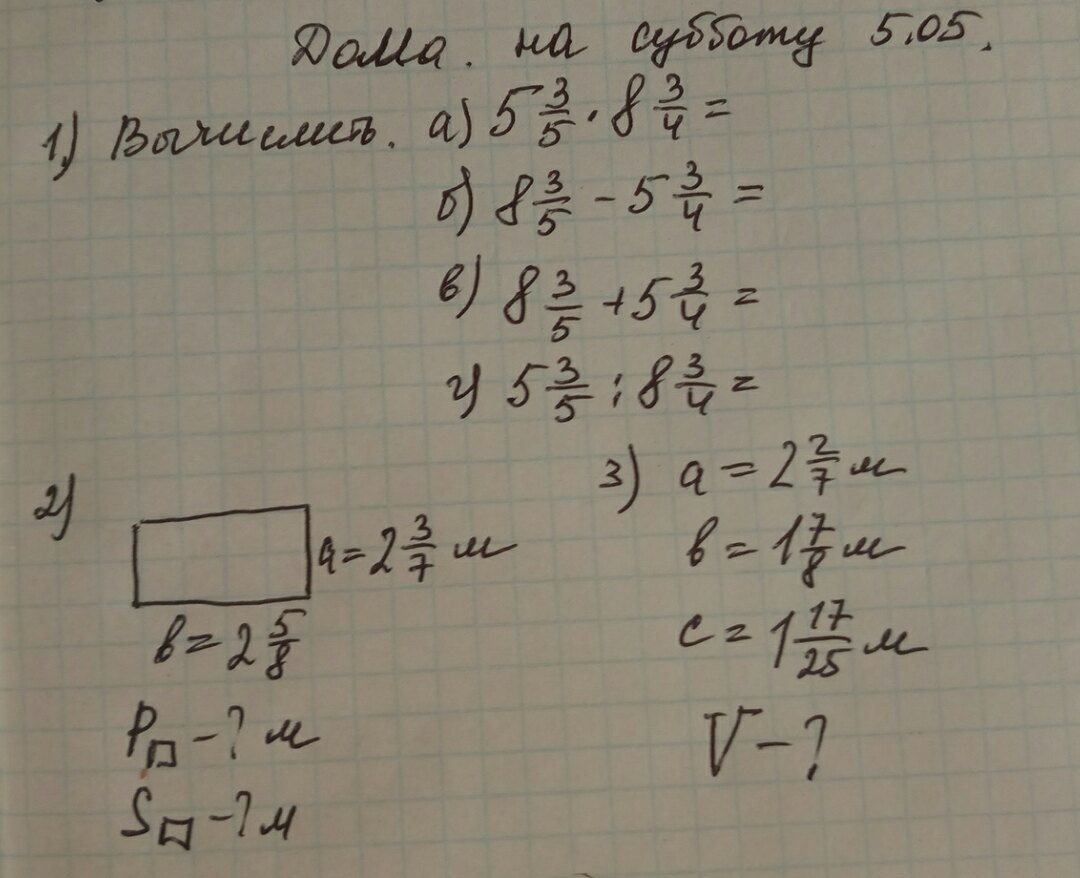 Дома. на субботу 5.05.
1) Вычислить. а) 5 3/5 · 8 3/4 =
б) 8 3/5 - 5 3/4 =
в) 8 3/5 + 5 3/4 =
г) 5 3/5 : 8 3/4 =
2)
a = 2 3/7 м
в = 2 5/8
P□ - ? м
S□ - ? м
3) a = 2 2/7 м
в = 1 7/8 м
c = 1 17/25 м
V - ?